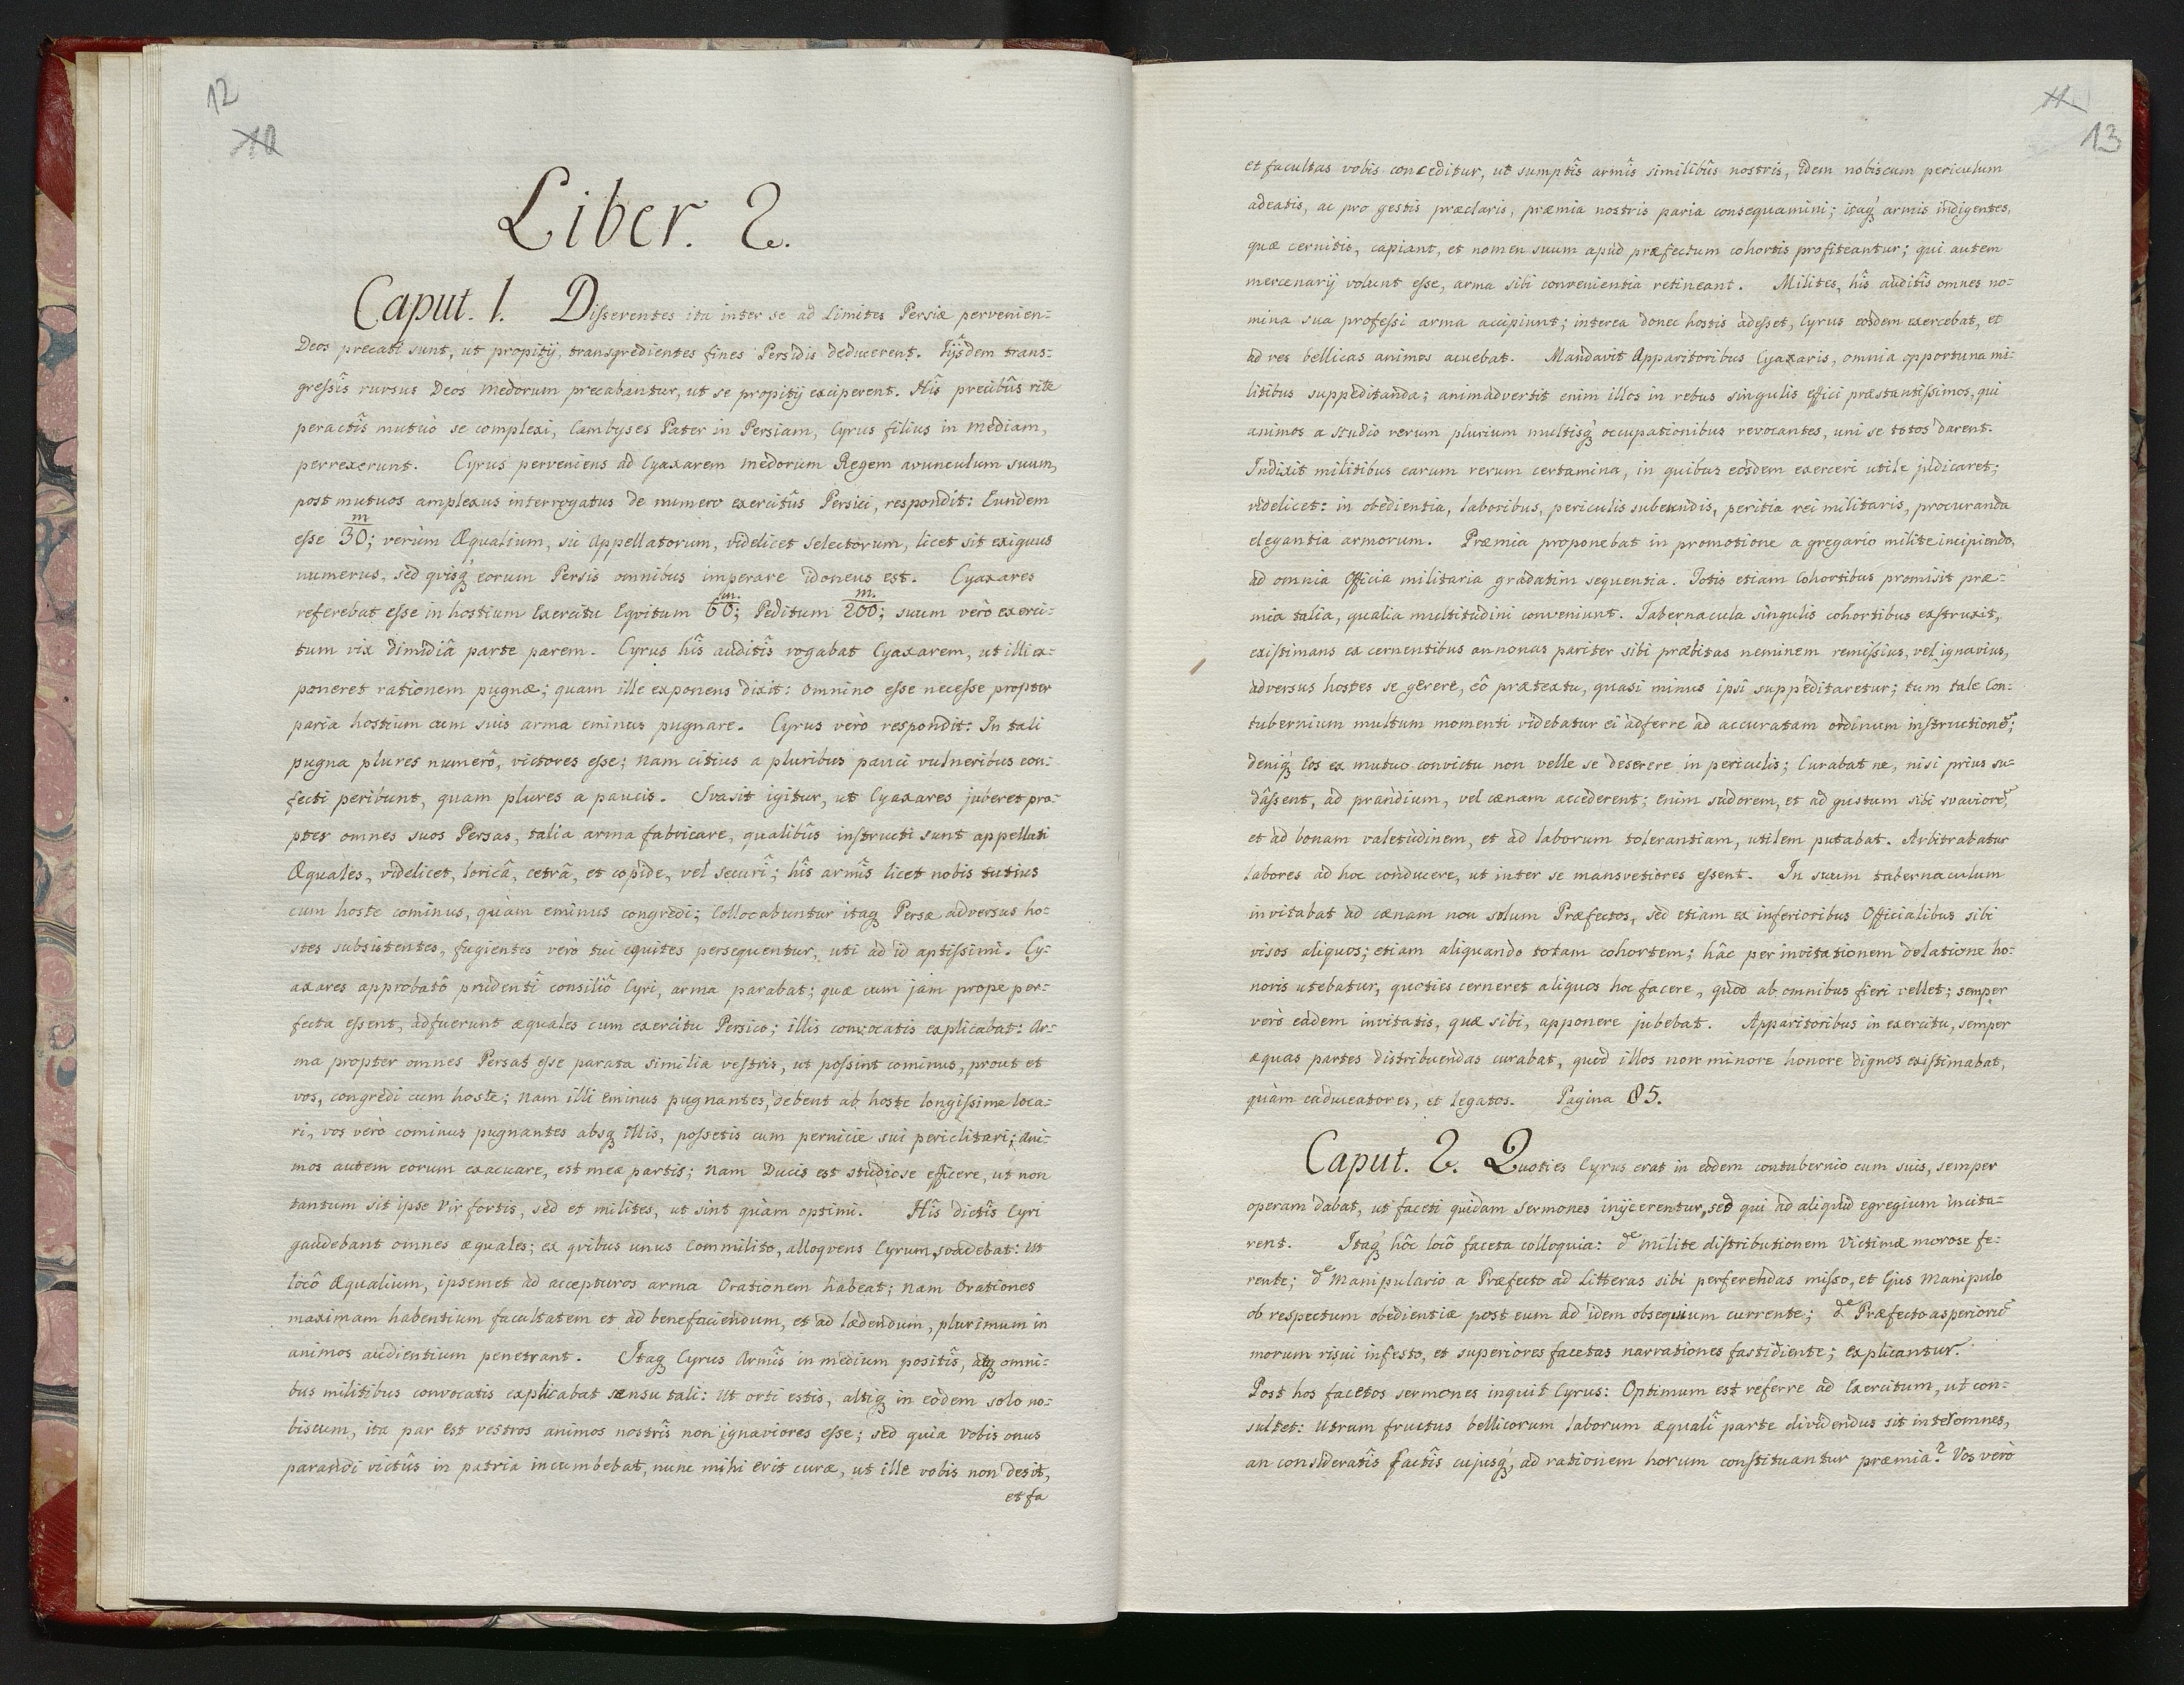 12
10
Liber. 2.
Caput. 1. Disserentes ita inter se ad Limites Persiæ pervenien=
Deos precati sunt, ut propitij, transgredientes fines Persidis deducerent. Iijsdem trans=
gressîs rursus Deos Medorum precabantur, ut se propitij exciperent. Hîs precibûs rite
peractîs mutuò se complexi, Cambyses Pater in Persiam, Cyrus filius in Mediam,
perrexerunt. Cyrus perveniens ad Cyaxarem Medorum Regem avunculum suum,
post mutuos amplexus interrogatus de numero exercitûs Persici, respondit: Eundem
esse 30 m; verùm Æqualium, sic Appellatorum, videlicet Selectorum, licet sit exiguus
numerus, sed quisq́ eorum Persis omnibus imperare idoneus est. Cyaxares
referebat esse in hostium Exercitu Eqvitum 60 m.; Peditum 200 m.; suum verò exerci=
tum vix dimidiâ parte parem. Cyrus hîs auditîs rogabat Cyaxarem, ut illi ex=
poneret rationem pugnæ; quam ille exponens dixit: Omnino esse necesse propter
paria hostium cum suis arma eminus pugnare. Cyrus verò respondit: In tali
pugna plures numerô, victores esse; nam citius a pluribus pauci vulneribus con=
fecti peribunt, quam plures a paucis. Svasit igitur, ut Cyaxares juberet pro=
pter omnes suos Persas, talia arma fabricare, qualibûs instructi sunt appellati
Æquales, videlicet, loricâ, cetrâ, et copide, vel securî; hîs armîs licet nobis tutius
cum hoste cominus, quàm eminus congredi; Collocabuntur itaq́ Persæ adversus ho=
stes subsistentes, fugientes verò tui equites persequentur, uti ad id aptissimi. Cy=
axares approbatô prudentî consiliô Cyri, arma parabat; quæ cum jam prope per=
fecta essent, adfuerunt æquales cum exercitu Persico; illis convocatis explicabat: Ar=
ma propter omnes Persas esse parata similia vestris, ut possint cominus, prout et
vos, congredi cum hoste; nam illi eminus pugnantes, debent ab hoste longissime loca=
ri, vos verò cominus pugnantes absq́ illis, possetis cum pernicie sui periclitari; Ani=
mos autem eorum exacuare, est meæ partis; nam Ducis est studiose efficere, ut non
tantum sit ipse Vir fortis, sed et milites, ut sint quàm optimi. Hîs dictîs Cyri
gaudebant omnes æquales; ex qvibus unus Commilito, alloqvens Cyrum, svadebat: Ut
locô Æqualium, ipsemet ad accepturos arma Orationem habeat; nam Orationes
maximam habentium facultatem et ad benefaciendum, et ad lædendum, plurimum in
animos audientium penetrant. Itaq́ Cyrus Armîs in medium positîs, atq́ omni=
bus militibus convocatis explicabat sensu tali: Ut orti estis, altiq́ in eodem solo no=
biscum, ita par est vestros animos nostrîs non ignaviores esse; sed quia vobis onus
parandi victûs in patria incumbebat, nunc mihi erit curæ, ut ille vobis non desit,
et fa
11
13
et facultas vobis conceditur, ut sumptîs armîs similibûs nostris, idem nobiscum periculum
adeatis, ac pro gestis præclaris, præmia nostris paria consequamini; itaq́ armis indigentes,
quæ cernitis, capiant, et nomen suum apud præfectum cohortis profiteantur; qui autem
mercenarij volunt esse, arma sibi convenientia retineant. Milites, hîs auditîs omnes no=
mina sua professi arma accipiunt; interea donec hostis adesset, Cyrus eosdem exercebat, et
ad res bellicas animos acuebat. Mandavit Apparitoribus Cyaxaris, omnia opportuna mi=
litibus suppeditanda; animadvertit enim illos in rebus singulis effici præstantissimos, qui
animos a studio rerum plurium multisq́ occupationibus revocantes, uni se totos darent.
Indixit militibus earum rerum certamina, in quibus eosdem exerceri utile judicaret;
videlicet: in obedientia, laboribus, periculis subeundis, peritia rei militaris, procuranda
elegantia armorum. Præmia proponebat in promotione a gregario milite incipiendo,
ad omnia Officia militaria gradatim sequentia. Totis etiam Cohortibus promisit præ=
mia talia, qualia multitudini conveniunt. Tabernacula singulis cohortibus exstruxit,
existimans ex cernentibus annonas pariter sibi præbitas neminem remissius, vel ignavius,
adversus hostes se gerere, eô prætextu, quasi minus ipsi suppeditaretur; tum tale Con=
tubernium multum momenti videbatur ei adferre ad accuratam ordinum instructionẽ;
deniq́ Eos ex mutuo convictu non velle se deserere in periculis; Curabat ne, nisi prius su=
dâssent, ad prandium, vel cænam accederent; enim sudorem, et ad gustum sibi svaviorẽ,
et ad bonam valetudinem, et ad laborum tolerantiam, utilem putabat. Arbitrabatur
labores ad hoc conducere, ut inter se mansvetiores essent. In suum tabernaculum
invitabat ad cænam non solum Præfectos, sed etiam ex inferioribus Officialibus sibi
visos aliquos; etiam aliquando totam cohortem; hâc per invitationem delatione ho=
noris utebatur, quoties cerneret aliquos hoc facere, quod ab omnibus fieri vellet; semper
verò eadem invitatis, quæ sibi, apponere jubebat. Apparitoribus in exercitu, semper
æquas partes distribuendas curabat, quod illos non minore honore dignos existimabat,
quàm caduceatores, et legatos. Pagina 85.
Caput. 2. Quoties Cyrus erat in eodem contubernio cum suis, semper
operam dabat, ut faceti quidam sermones inijcerentur, sed qui ad aliquid egregium incita=
rent. Itaq́ hôc locô faceta colloquia: de Milite distributionem Victimæ morose fe=
rente; de Manipulario a Præfecto ad Litteras sibi perferendas misso, et Ejus Manipulo
ob respectum obedientiæ post eum ad idem obsequium currente; de Præfecto asperiorũ
morum risui infesto, et superiores facetas narrationes fastidiente; explicantur.
Post hos facetos sermones inquit Cyrus: Optimum est referre ad Exercitum, ut con=
sultet: Utrum fructus bellicorum laborum æqualî parte dividendus sit inter omnes,
an consideratîs factîs cujusq́, ad rationem horum constituantur præmia? Vos verò